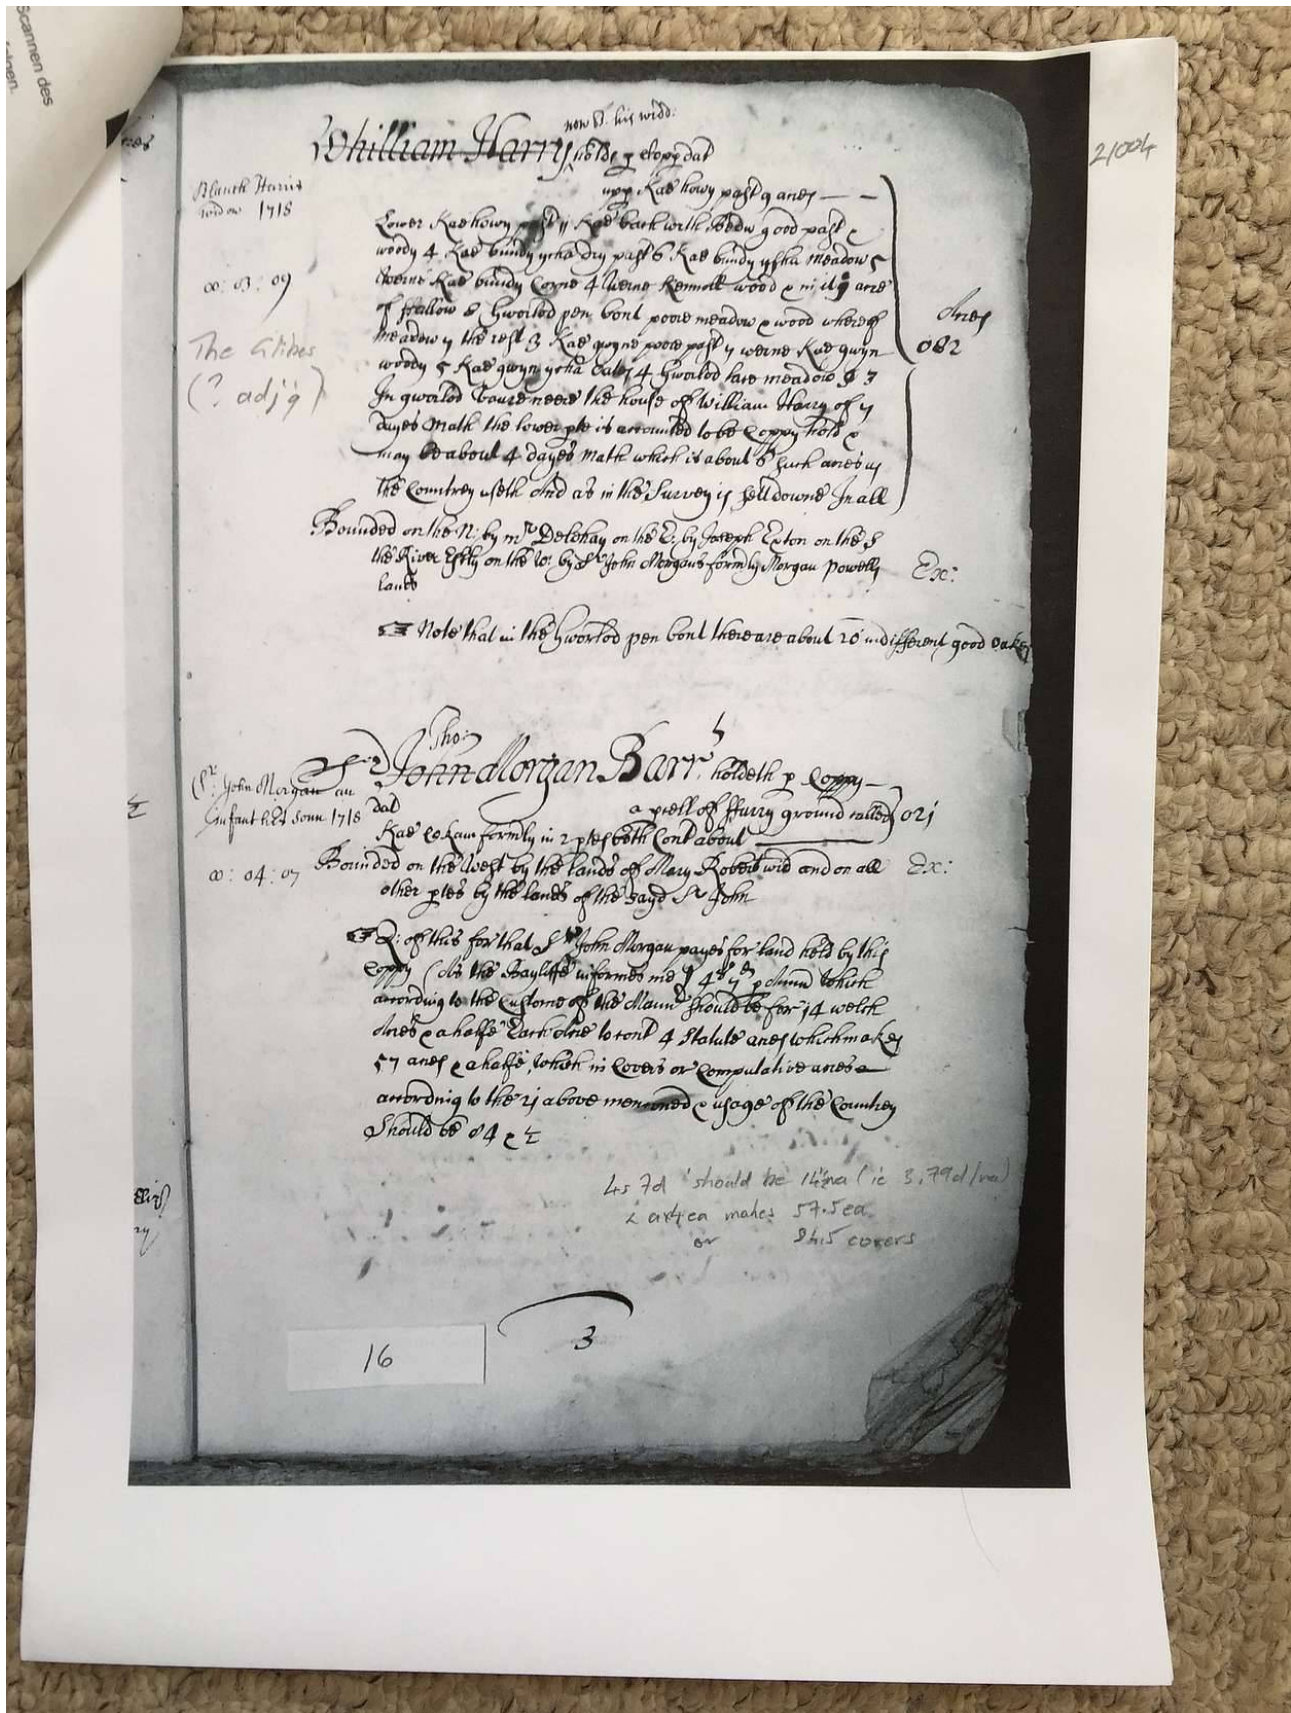 Scannen des
21004
now B. his widd:
Whilliam Harry holds p Copp dat
Blanch Harris
widow 1718
upp Kae howy past 9 acres
Lower Kae howy past 11 Kae bach with Bedw good past &
woody 4 Kae bundy ycha dry past 6 Kae bundy ysha meadow 5
00: 03: 09
Werne Kae bundy Corne 4 Werne Kennoll wood & in it 9 acre
of ffallow 8 Gworlod pen bont poore meadow & wood whereof
Acres
082
The Glibes
(? adj'g)
meadow 7 the rest 3 Kae gwyne poore past 7 werne Kae gwyn
woody 5 Kae gwyn ycha Oates 4 Gworlod meadow 3
In gworlod vaure neere the house of William Harry of 7
dayes Math the lower pte is accounted to be Coppy hold &
may be about 4 dayes Math which is about 6 such acres as
the Countrey useth And as in the Survey is sett downe In all
Bounded on the N: by mr Delehay on the E: by Joseph Exton on the S
the River on the W: by Sr John Morgans formly Morgan Powells
lands
Ex:
Note that in the Gworlod pen bont there are about 20 indifferent good oakes
Tho:
Sr John Morgan Barrt holdeth p Coppy
(Sr John Morgan an
Infant his sonn 1718
dat a pcell of ffurry ground called 021
Kae formly in 2 ptes both Cont about
00: 04: 07
Bounded on the West by the lands of Mary Robert wid and on all
Ex:
other ptes by the lands of the sayd Sr John
Q: of this for that Sr John Morgan payes for land held by this
Coppy (As the Bayliffe informes me) 4s 7d p Annu which
according to the Custome of the Mannr should be for 14 welch
Acres & a halfe Each Acre to cont 4 Statute acres which makes
57 acres & a halfe, which in Covers or Computative acres
according to the 21 above mencioned & usage of the Countrey
Should be 84 & ½
4s 7d should be 14½wa (ie 3.79d/wa)
& at 4ea makes 57.5ea
or 84.5 covers
3
16